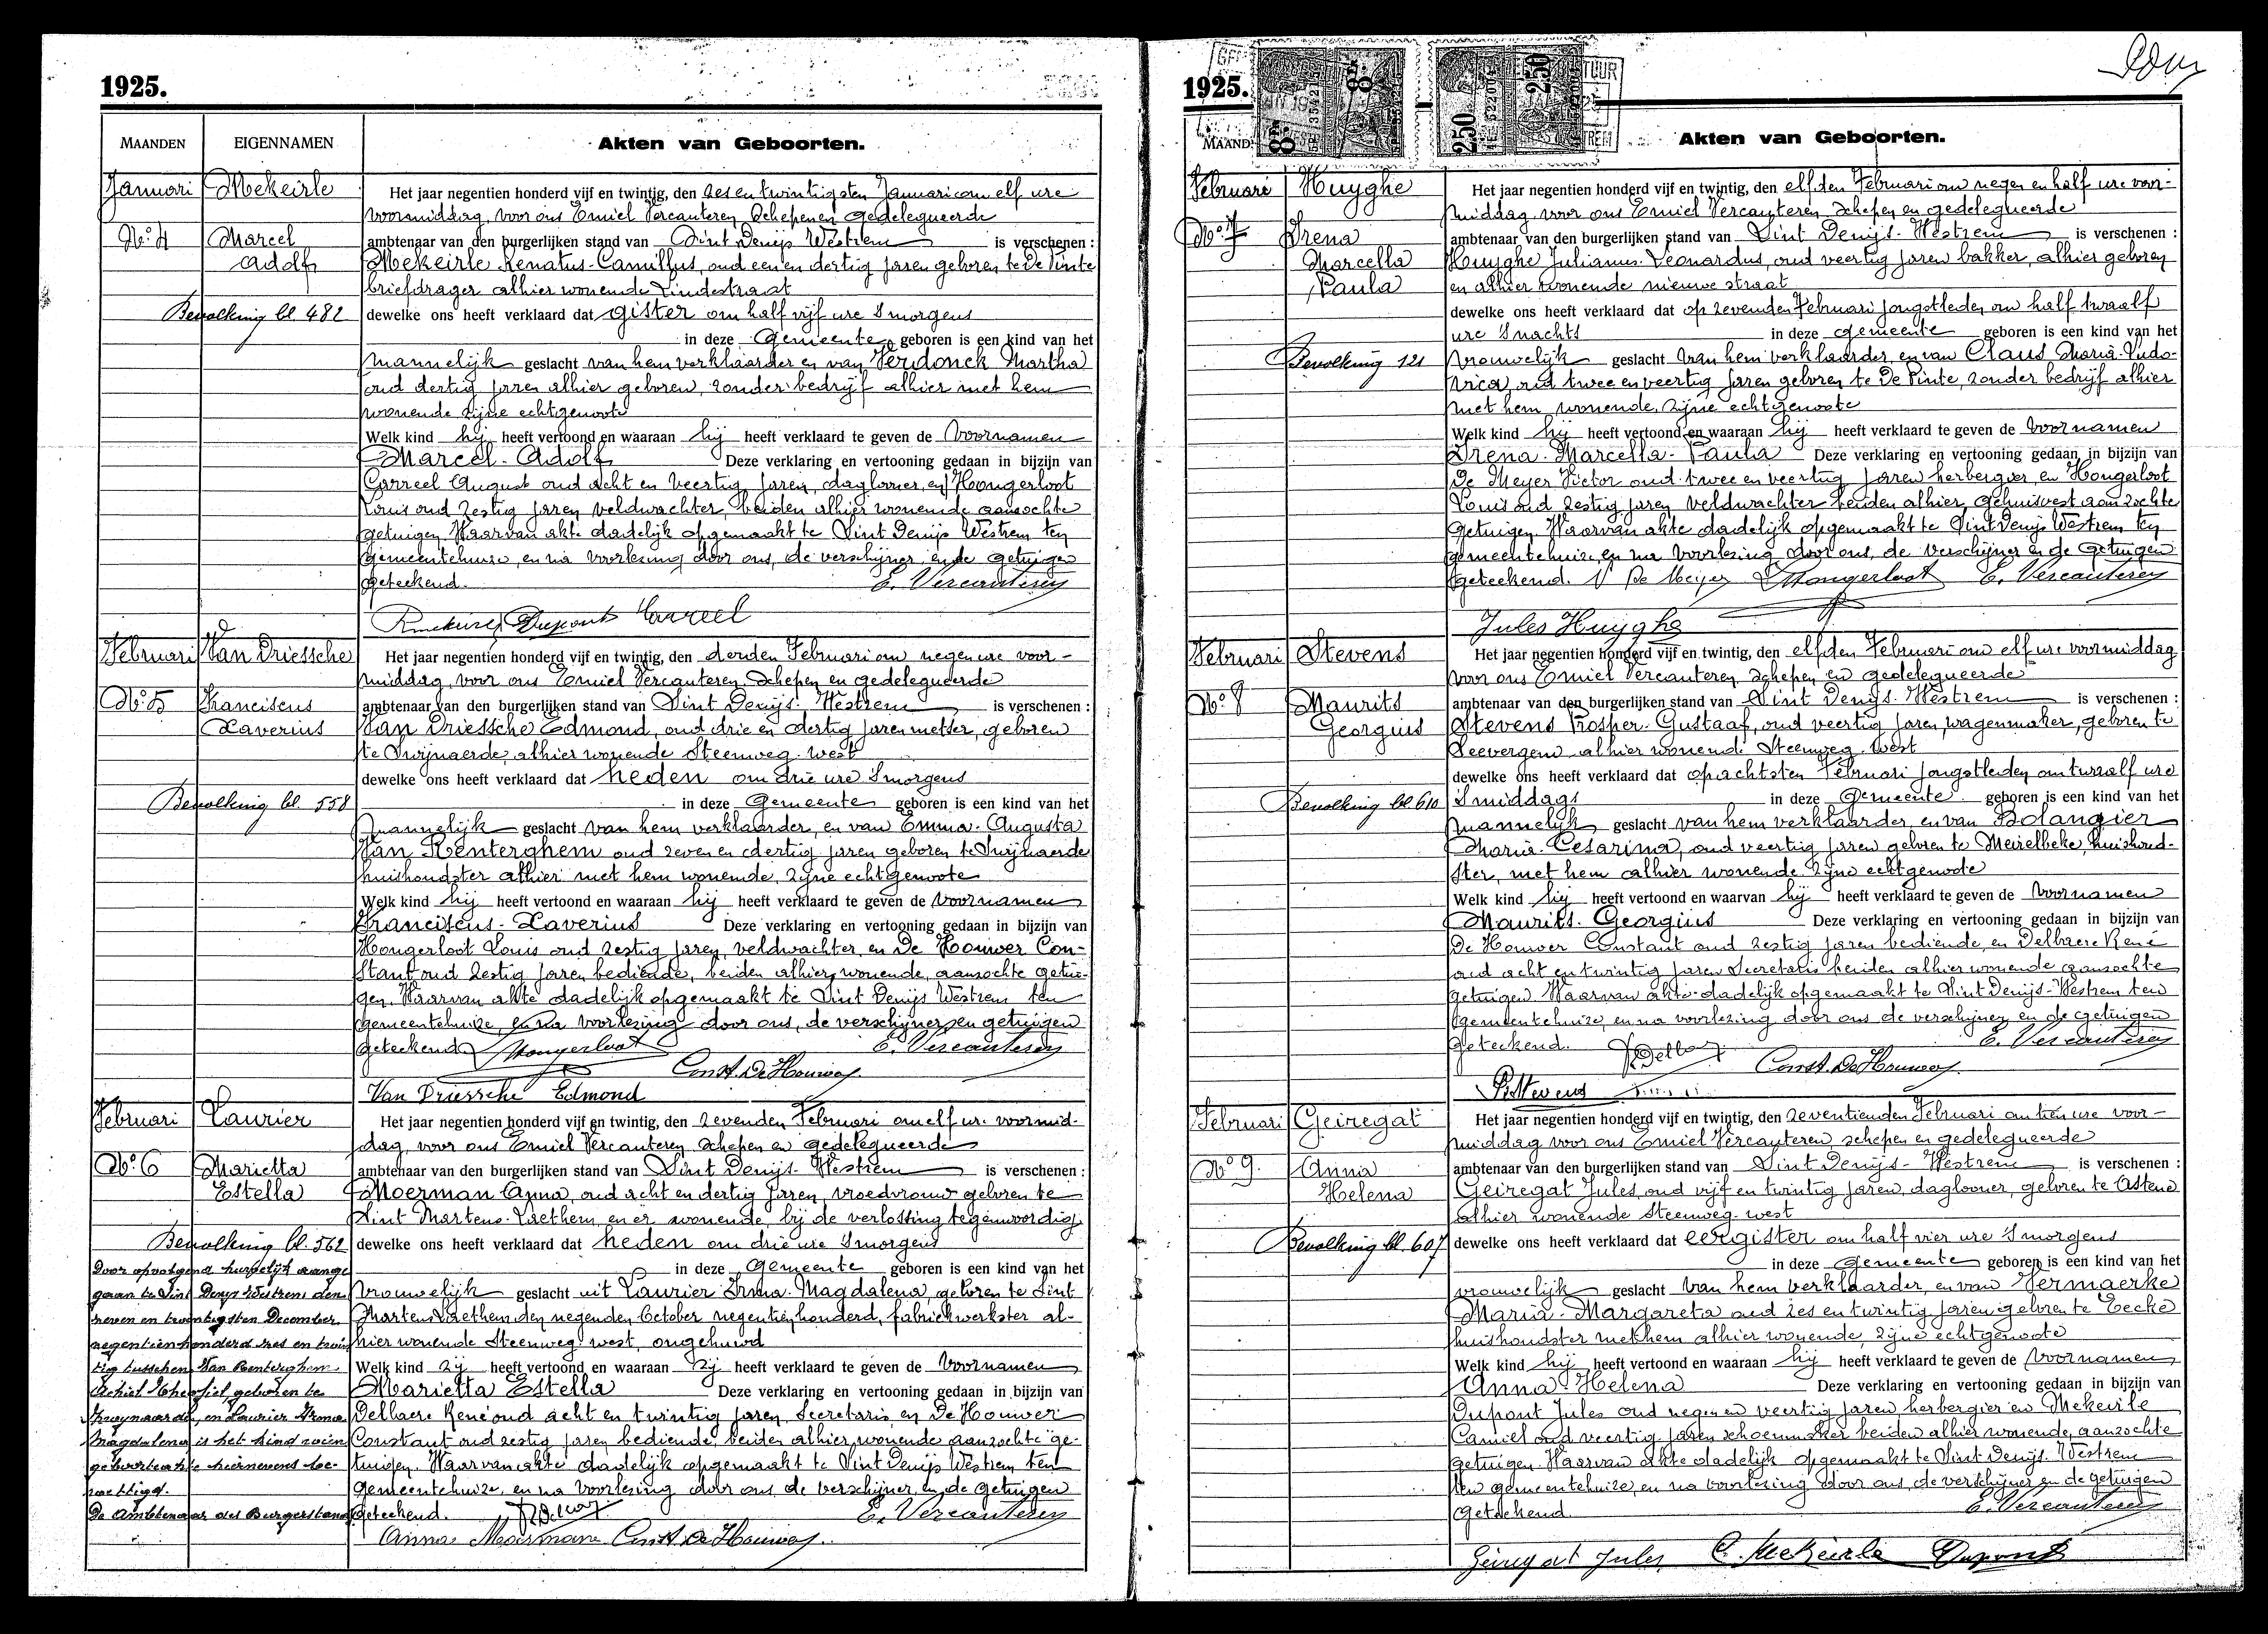 1925.
MAANDEN EIGENNAMEN Akten van Geboorten.
Januari Mekeirle
Het jaar negentien honderd vijf en twintig, den zes en twintigsten Januari om elf ure
voormiddag, voor ons Emiel Vercauteren Schepen en gedelegueerde
No. 4 Marcel
ambtenaar van den burgerlijken stand van Sint Denijs Westrem is verschenen :
Adolf
Mekeirle Renatus-Camillus, oud een en dertig jaren geboren te De Pinte
briefdrager alhier wonende Lindestraat
Bevolking bl. 482
dewelke ons heeft verklaard dat gister om half vijf ure smorgens
in deze Gemeente geboren is een kind van het
mannelijk geslacht van hem verklaarder en van Verdonck Martha
oud dertig jaren alhier geboren, zonder bedrijf alhier met hem
wonende zijne echtgenoote
Welk kind hij heeft vertoond en waaraan hij heeft verklaard te geven de Voornamen
Marcel-Adolf Deze verklaring en vertooning gedaan in bijzijn van
Carreel August oud acht en veertig jaren, daglooner, en Hongerloot
Louis oud zestig jaren veldwachter, beiden alhier wonende aanzochte
getuigen. Waarvan akte dadelijk opgemaakt te Sint Denijs Westrem ten
gemeentehuize, en na voorlezing door ons, de verschijner, en de getuigen
geteekend. E. Vercauteren
Dupont Carreel
Februari Van Driessche
Het jaar negentien honderd vijf en twintig, den derden Februari om negen ure voor-
middag, voor ons Emiel Vercauteren Schepen en gedelegueerde
No. 5 Franciscus
ambtenaar van den burgerlijken stand van Sint Denijs-Westrem is verschenen :
Xaverius
Van Driessche Edmond, oud drie en dertig jaren metser, geboren
te Swijnaerde, alhier wonende Steenweg-west
dewelke ons heeft verklaard dat heden om drie ure smorgens
Bevolking bl 558
in deze Gemeente geboren is een kind van het
mannelijk geslacht van hem verklaarder, en van Emma-Augusta
Van Renterghem oud zeven en dertig jaren geboren te Swijnaerde
huishoudster alhier met hem wonende, zijne echtgenoote
Welk kind hij heeft vertoond en waaraan hij heeft verklaard te geven de voornamen
Franciscus-Xaverius Deze verklaring en vertooning gedaan in bijzijn van
Hongerloot Louis oud zestig jaren, veldwachter en De Houwer Con-
stant oud zestig jaren bediende, beiden alhier wonende, aanzochte getui-
gen. Waarvan akte dadelijk opgemaakt te Sint Denijs Westrem ten
gemeentehuize, en na voorlezing door ons, de verschijner, en getuigen
geteekend. Hongerloot E. Vercauteren
Const. De Houwer
Van Driessche Edmond
Februari Laurier
Het jaar negentien honderd vijf en twintig, den zevenden Februari om elf ure voormid-
dag, voor ons Emiel Vercauteren Schepen en gedelegueerde
No. 6 Marietta
ambtenaar van den burgerlijken stand van Sint Denijs-Westrem is verschenen :
Estella
Moerman Anna, oud acht en dertig jaren, vroedvrouw geboren te
Sint Martens-Laethem, en er wonende, bij de verlossing tegenwoordig
Bevolking bl. 562
dewelke ons heeft verklaard dat heden om drie ure smorgens
Door opvolgend huwelijk aange
in deze Gemeente geboren is een kind van het
gaan te Sint Denijs Westrem den
vrouwelijk geslacht uit Laurier Irma-Magdalena, geboren te Sint
zeven en twentigsten December
Martens Laethem den negenden October negentien honderd, fabriekwerkster al-
negentien honderd zes en twin
hier wonende Steenweg-west, ongehuwd
tig tusschen Van Renterghem
Welk kind zij heeft vertoond en waaraan zij heeft verklaard te geven de Voornamen
Achiel geboren te
Marietta Estella Deze verklaring en vertooning gedaan in bijzijn van
Zwijnaarde, en Laurier Irma
Delbaere René oud acht en twintig jaren, Secretaris en De Houwer
Magdalena is het kind wien
Constant oud zestig jaren bediende, beiden alhier wonende aanzochte ge-
geboorteakte hiernevens we-
tuigen. Waarvan akte dadelijk opgemaakt te Sint Denijs Westrem ten
wettigd.
Gemeentehuize, en na voorlezing door ons de verschijner en de getuigen
De Ambtenaar des Burgerstand
geteekend. E. Vercauteren
Anna Moerman Const. De Houwer
1925.
MAAND Akten van Geboorten.
Februari Huyghe
Het jaar negentien honderd vijf en twintig, den elfden Februari om negen en half ure voor-
middag voor ons Emiel Vercauteren Schepen en gedelegueerde
No. 7 Irena
ambtenaar van den burgerlijken stand van Sint Denijs-Westrem is verschenen :
Marcella
Huyghe Julianus-Leonardus, oud veertig jaren bakker, alhier geboren
Paula
en alhier wonende nieuwe straat
dewelke ons heeft verklaard dat op zevenden Februari jongstleden om half twaalf
ure snachts in deze gemeente geboren is een kind van het
Bevolking 121
vrouwelijk geslacht van hem verklaarder, en van Claus Maria-Ludo-
vica, oud twee en veertig jaren geboren te De Pinte, zonder bedrijf alhier
met hem wonende, zijne echtgenoote
Welk kind hij heeft vertoond en waaraan hij heeft verklaard te geven de voornamen
Irena-Marcella-Paula Deze verklaring en vertooning gedaan in bijzijn van
De Meyer Victor oud twee en veertig jaren herbergier, en Hongerloot
Louis oud zestig jaren veldwachter beiden alhier, gehuisvest aanzochte
getuigen. Waarvan akte dadelijk opgemaakt te Sint Denijs Westrem ten
gemeentehuize, en na voorlezing door ons, de verschijner en de getuigen
geteekend. V De Meyer Hongerloot E. Vercauteren
Jules Huyghe
Februari Stevens
Het jaar negentien honderd vijf en twintig, den elfden Februari om elf ure voormiddag
voor ons Emiel Vercauteren Schepen en gedelegueerde
No. 8 Maurits
ambtenaar van den burgerlijken stand van Sint Denijs-Westrem is verschenen :
Georgius
Stevens Prosper-Gustaaf, oud veertig jaren, wagenmaker, geboren te
Seevergem alhier wonende Steenweg-west
dewelke ons heeft verklaard dat op achtsten Februari jongstleden om twaalf ure
Bevolking bl 610
smiddags in deze Gemeente geboren is een kind van het
mannelijk geslacht van hem verklaarder, en van Bolangier
Maria-Cesarina, oud veertig jaren geboren te Meirelbeke, huishoud-
ster, met hem alhier wonende zijne echtgenoote
Welk kind hij heeft vertoond en waarvan hij heeft verklaard te geven de Voornamen
Maurits-Georgius Deze verklaring en vertooning gedaan in bijzijn van
De Houwer Constant oud zestig jaren bediende, en Delbaere René
oud acht en twintig jaren Secretaris beiden alhier wonende aanzochte
getuigen. Waarvan akte dadelijk opgemaakt te Sint Denijs-Westrem ten
gemeentehuize, en na voorlezing door ons de verschijner en de getuigen
geteekend. E. Vercauteren
Const. De Houwer
P. Stevens
Februari Geiregat
Het jaar negentien honderd vijf en twintig, den zeventienden Februari om tien ure voor-
middag voor ons Emiel Vercauteren, schepen en gedelegueerde
No. 9. Anna
ambtenaar van den burgerlijken stand van Sint Denijs-Westrem is verschenen :
Helena
Geiregat Jules, oud vijf en twintig jaren, daglooner, geboren te Astene
alhier wonende Steenweg-west
Bevolking bl 607
dewelke ons heeft verklaard dat eergister om half vier ure smorgens
in deze Gemeente geboren is een kind van het
vrouwelijk geslacht van hem verklaarder, en van Vermaerke
Maria-Margareta oud zes en twintig jaren geboren te Eecke
huishoudster met hem alhier wonende, zijne echtgenoote
Welk kind hij heeft vertoond en waaraan hij heeft verklaard te geven de voornamen
Anna-Helena Deze verklaring en vertooning gedaan in bijzijn van
Dupont Jules oud negen en veertig jaren herbergier en Mekeirle
Camiel oud veertig jaren schoenmaker beiden alhier wonende, aanzochte
getuigen. Waarvan akte dadelijk opgemaakt te Sint Denijs-Westrem
ten gemeentehuize, en na voorlezing door ons, de verschijner en de getuigen
Geteekend. E. Vercauteren
Geiregat Jules C. Mekeirle Dupont